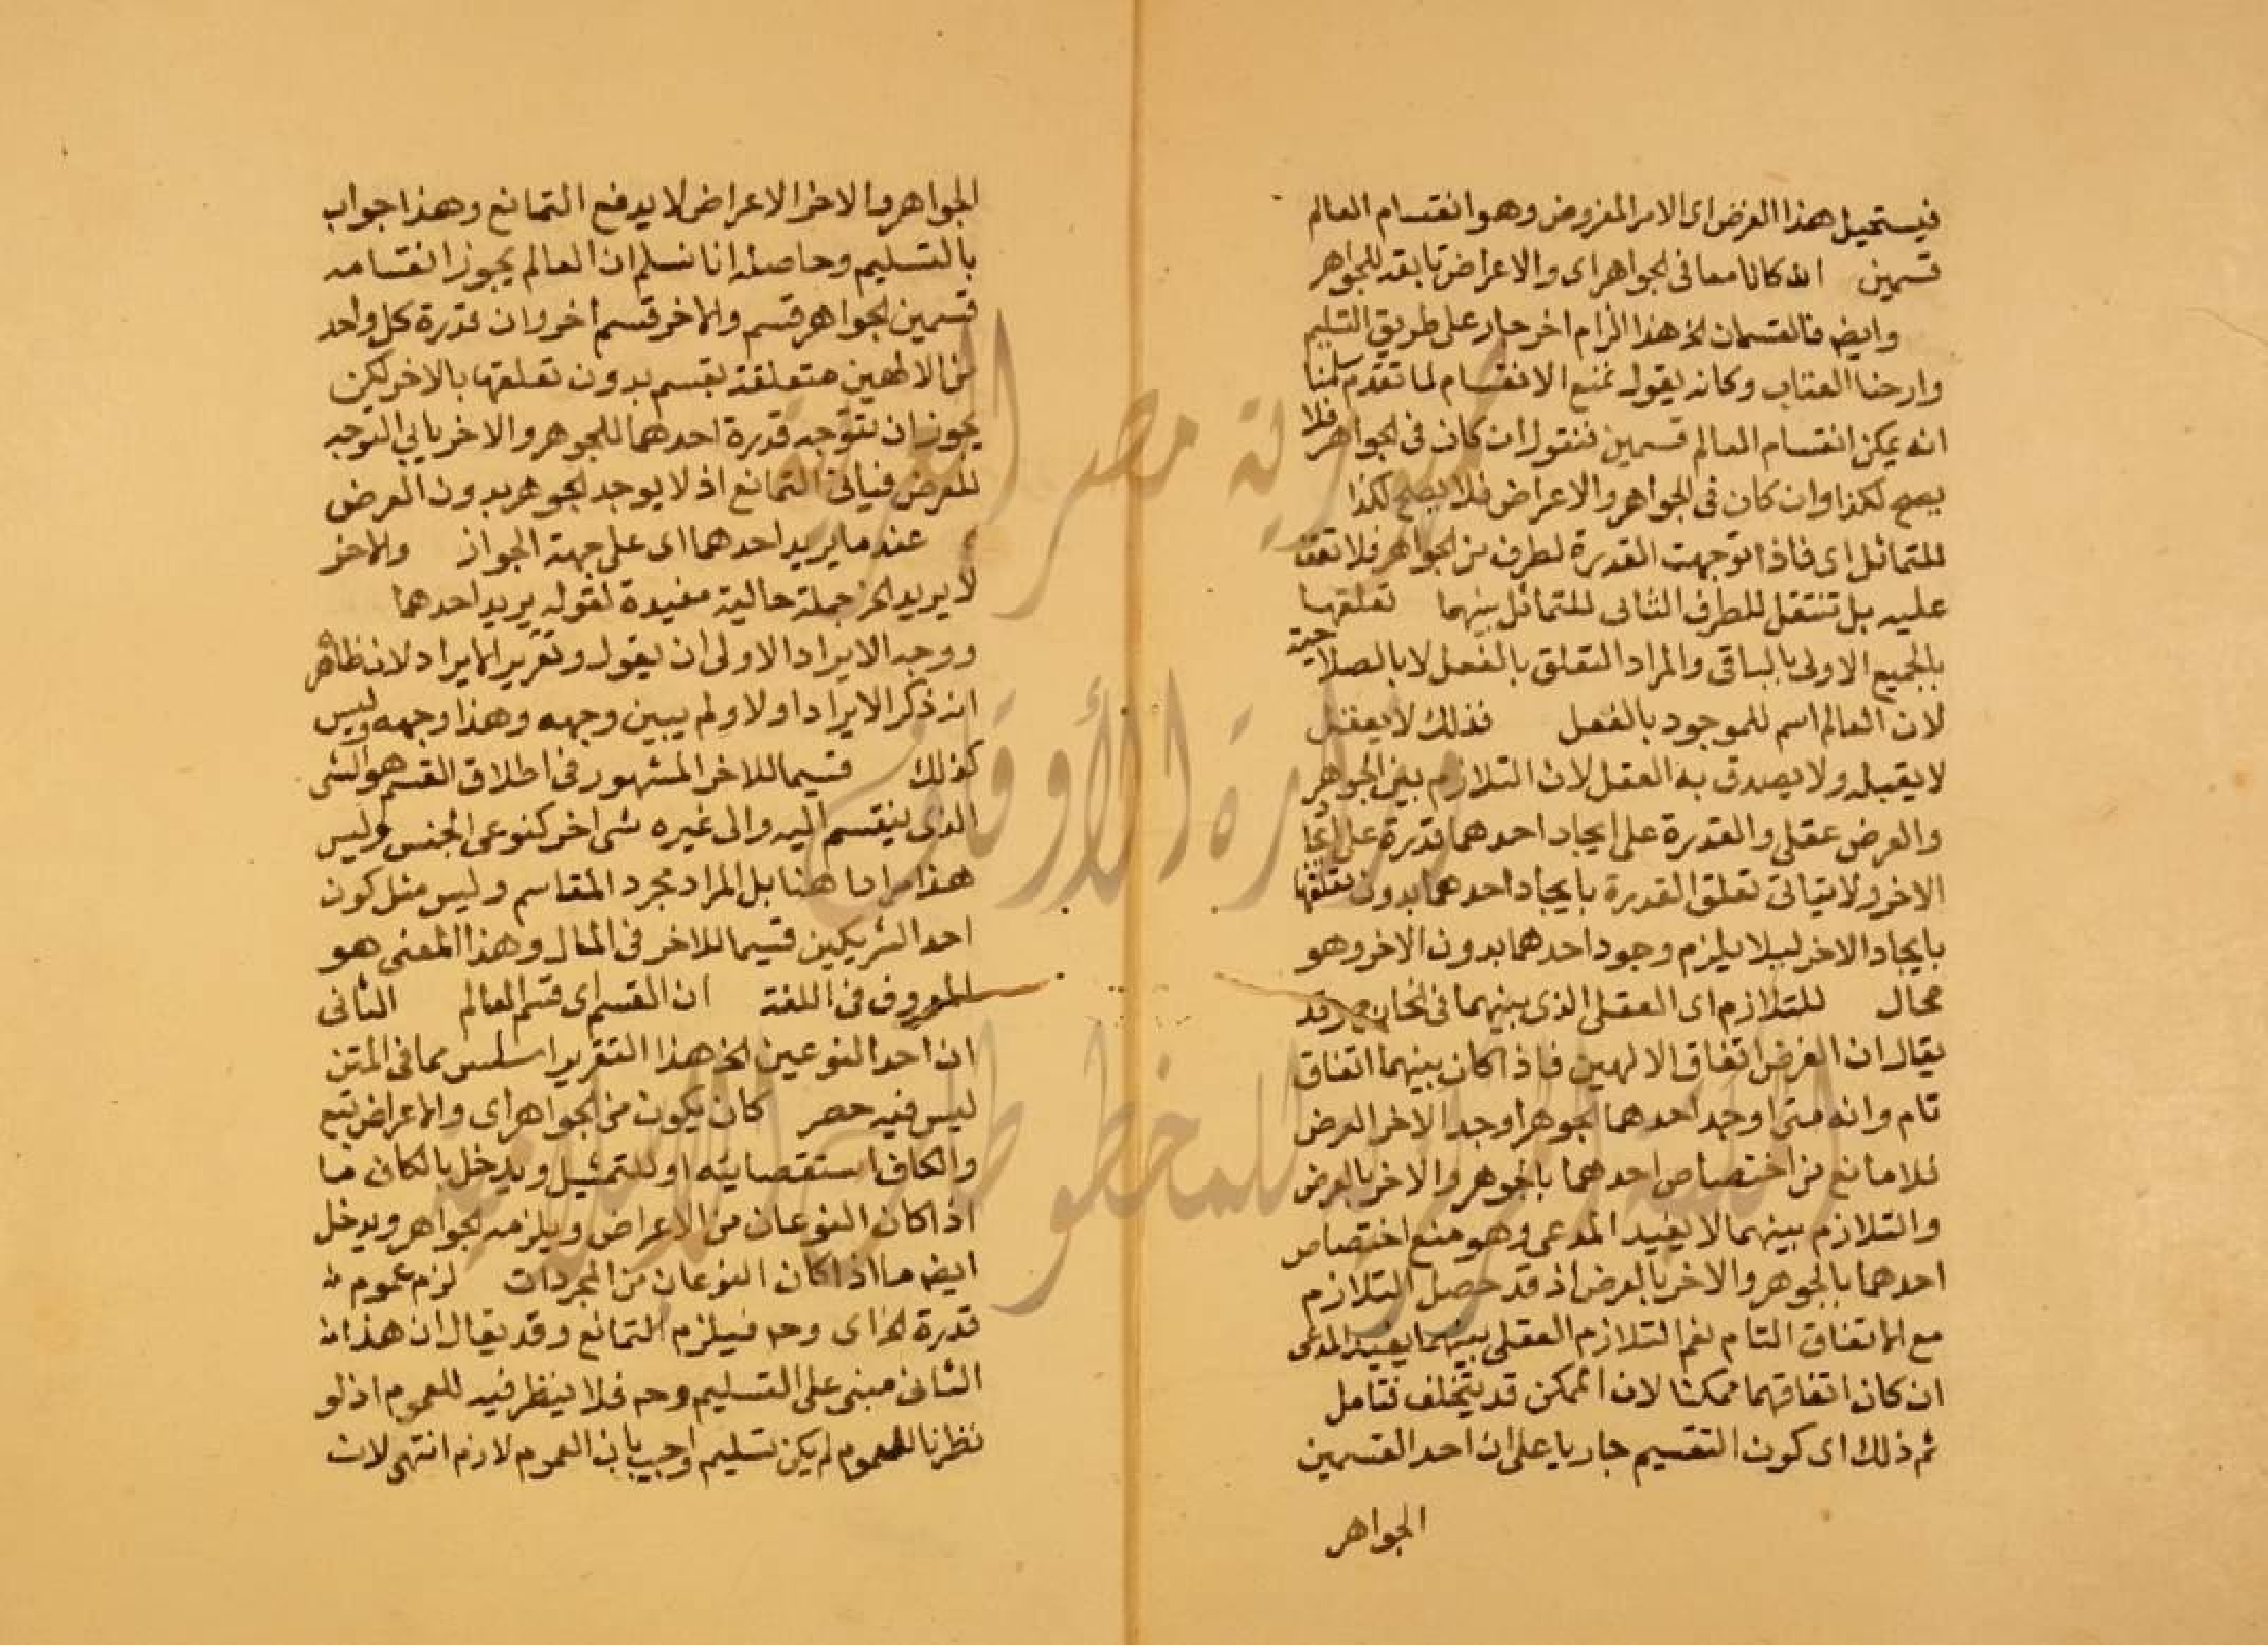 فيستحيل هذا الفرض اى الامر المفروض وهو انقسام العالم
قسمين الله كانا معا فى الجواهر اى والاعراض تابعة للجواهر
وايض فالقسمان الخ هذا الزام اخر جار على طريق التسليم
وارخا العنان وكانه يقول نمنع الانقسام لما تقدم سلمنا
انه يمكن انقسام العالم قسمين فنقول ان كان فى الجواهر فلا
يصح لكذا وان كان فى الجواهر والاعراض فلا يصح لكذا
للتماثل اى فاذا توجهت القدرة لطرف من الجواهر فلا تقف
عليه بل تنتقل للطرف الثانى للتماثل بينهما تعلقها
بالجميع الاولى بالباقى والمراد التعلق بالفعل لا بالصلاحية
لان العالم اسم للموجود بالفعل فذلك لا يعقل
لا يقبله ولا يصدق به العقل لان التلازم بين الجوهر
والعرض عقلى والقدرة على ايجاد احدهما قدرة على ايجا
الاخر ولا يتاتى تعلق القدرة بايجاد احدهما بدون تعلقها
بايجاد الاخر ليلا يلزم وجود احدهما بدون الاخر وهو
محال للتلازم اى العقلى الذى بينهما فى الخارج وقد
يقال ان الفرض اتفاق الالهين فاذا كان بينهما اتفاق
تام وانه متى اوجد احدهما الجوهر اوجد الاخر العرض
فلا مانع من اختصاص احدهما بالجوهر والاخر بالعرض
والتلازم بينهما لا يفيد المدعى وهو منع اختصاص
احدهما بالجوهر والاخر بالعرض اذ قد حصل التلازم
مع الاتفاق التام نعم التلازم العقلى بينهما يفيد المدعى
ان كان اتفاقهما ممكنا لان الممكن قد يتخلف فتامل
ثم ذلك اى كون التقسيم جاريا على ان احد القسمين
الجواهر
الجواهر والاخر الاعراض لا يدفع التمانع وهذا جواب
بالتسليم وحاصله انا نسلم ان العالم يجوز انقسامه
قسمين الجواهر قسم والاخر قسم اخر وان قدرة كل واحد
من الالهين متعلقة بقسم بدون تعلقها بالاخر لكن
يجوز ان تتوجه قدرة احدهما للجوهر والاخر يابى التوجه
للعرض فياتى التمانع اذ لا يوجد الجوهر بدون العرض
عندما يريد احدهما اى على جهة الجواز والاخر
لا يريد الخ جملة حالية مفيدة لقوله يريد احدهما
ووجه الايراد الاولى ان يقول وتقرير الايراد لان ظاهر
انه ذكر الايراد اولا ولم يبين وجهه وهذا وجهه وليس
كذلك قسيما للاخر المشهور فى اطلاق القسم هو الشى
الذى ينقسم اليه والى غيره شى اخر كنوعى الجنس وليس
هذا مرادا هنا بل المراد مجرد المقاسم وليس مثل كون
احد الشريكين قسيما للاخر فى المال وهذا المعنى هو
المعروف فى اللغة ان القسم اى قسم العالم الثانى
ان احد النوعين الخ هذا التقرير اسلس مما فى المتن
ليس فيه حصر كان يكون من الجواهر اى والاعراض تتبع
والكاف استقصايئه او للتمثيل ويدخل بالكان ما
اذا كان النوعان من الاعراض ويلزمه الجواهر ويدخل
ايض ما اذا كان النوعان من المجردات لزم عموم
قدرة الخ اى وح فيلزم التمانع وقد يقال ان هذا
الثانى مبنى على التسليم وح فلا ينظر فيه للعموم اذ لو
نظرنا للعموم لم يكن تسليم واجيب بان العموم لازم انتهى لان